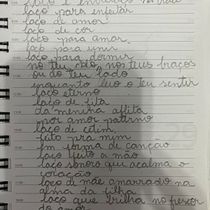 laço para enfeitar
laço de amor
laço de cor
laço para amar
laço para unir
laço para dormir
no teu colo, nos teus braços
ou do teu lado
enquanto leio o teu sentir
laço eterno
laço de fita
da menina aflita
por amor paterno
laço de cetim
feito pra mim
em forma de canção
laço feito a mão
laço sonoro que acalma o
coração
laço de mãe amarrado na
alma da filha
laço que brilha no
do amor